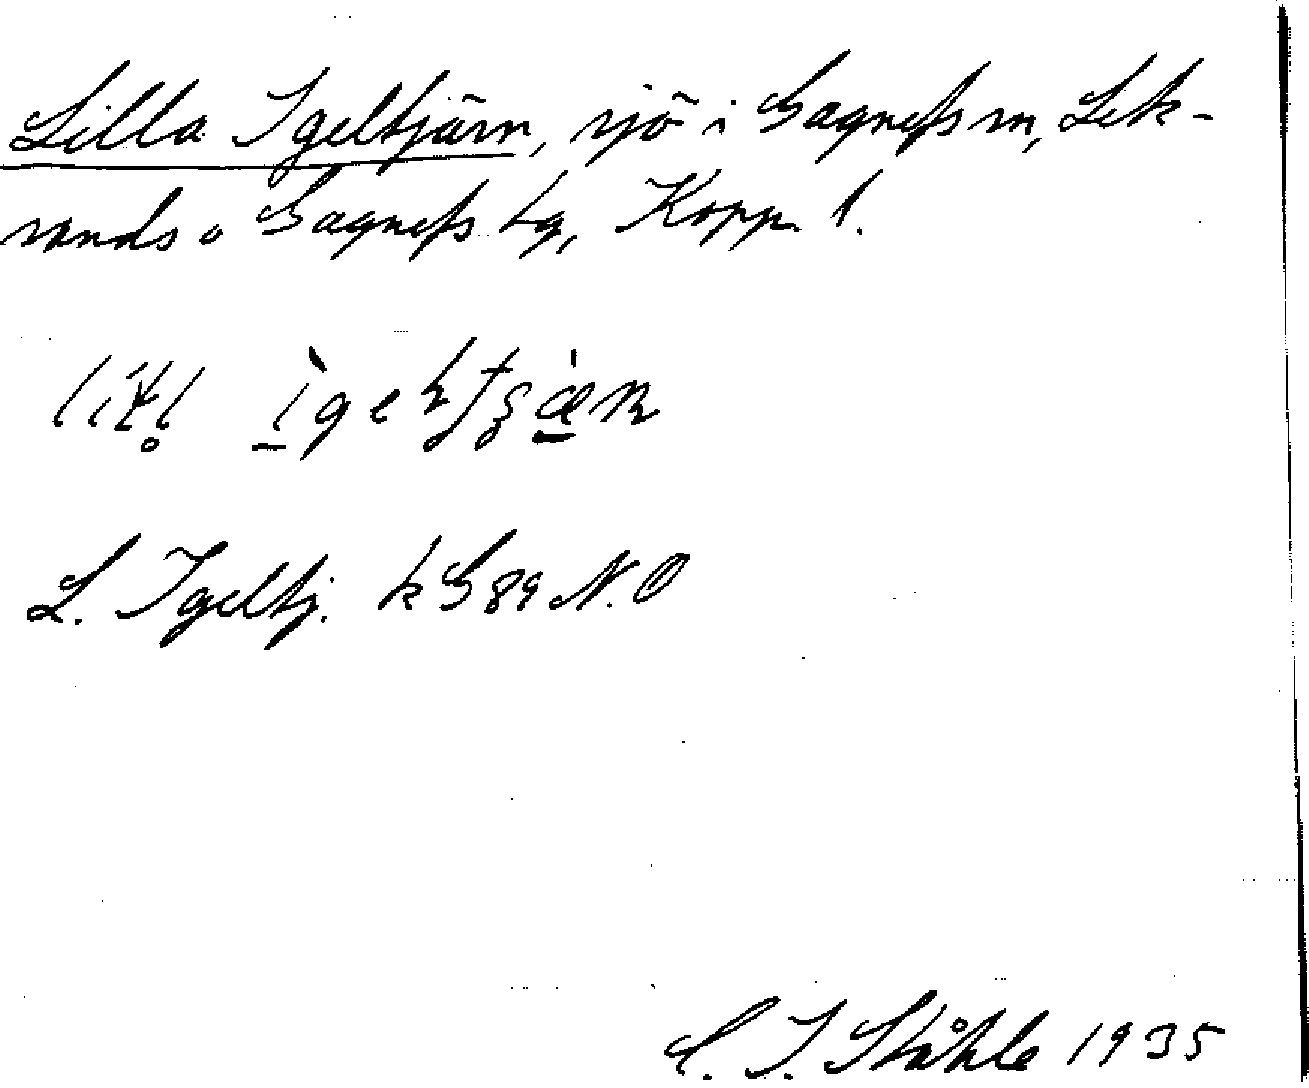 Lilla Igeltjärn, sjö i Gagnefs sn, Lek-
sands o Gagnefs tg, Kopp. l.
L. Igeltj. k G 89 N.O
C. I. Ståhle 1935